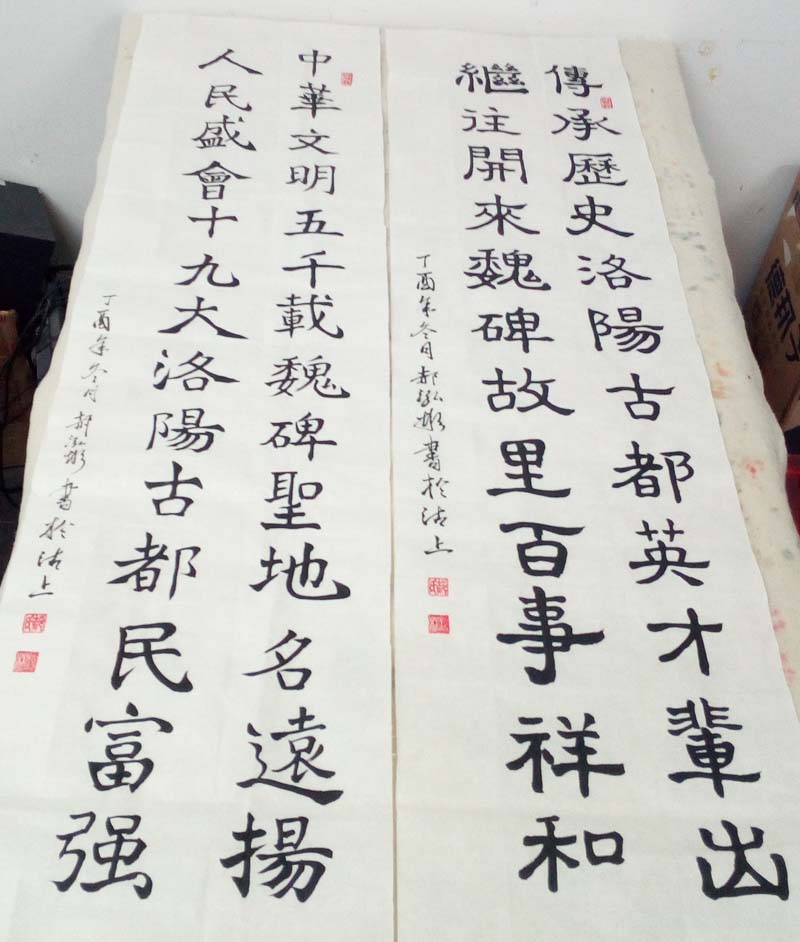 傳承歷史洛陽古都英才輩出
繼往開來魏碑故里百事祥和
丁酉年冬月郝弘彬書於沽上
中華文明五千載魏碑聖地名遠揚
人民盛會十九大洛陽古都民富强
丁酉年冬月郝弘彬書於沽上